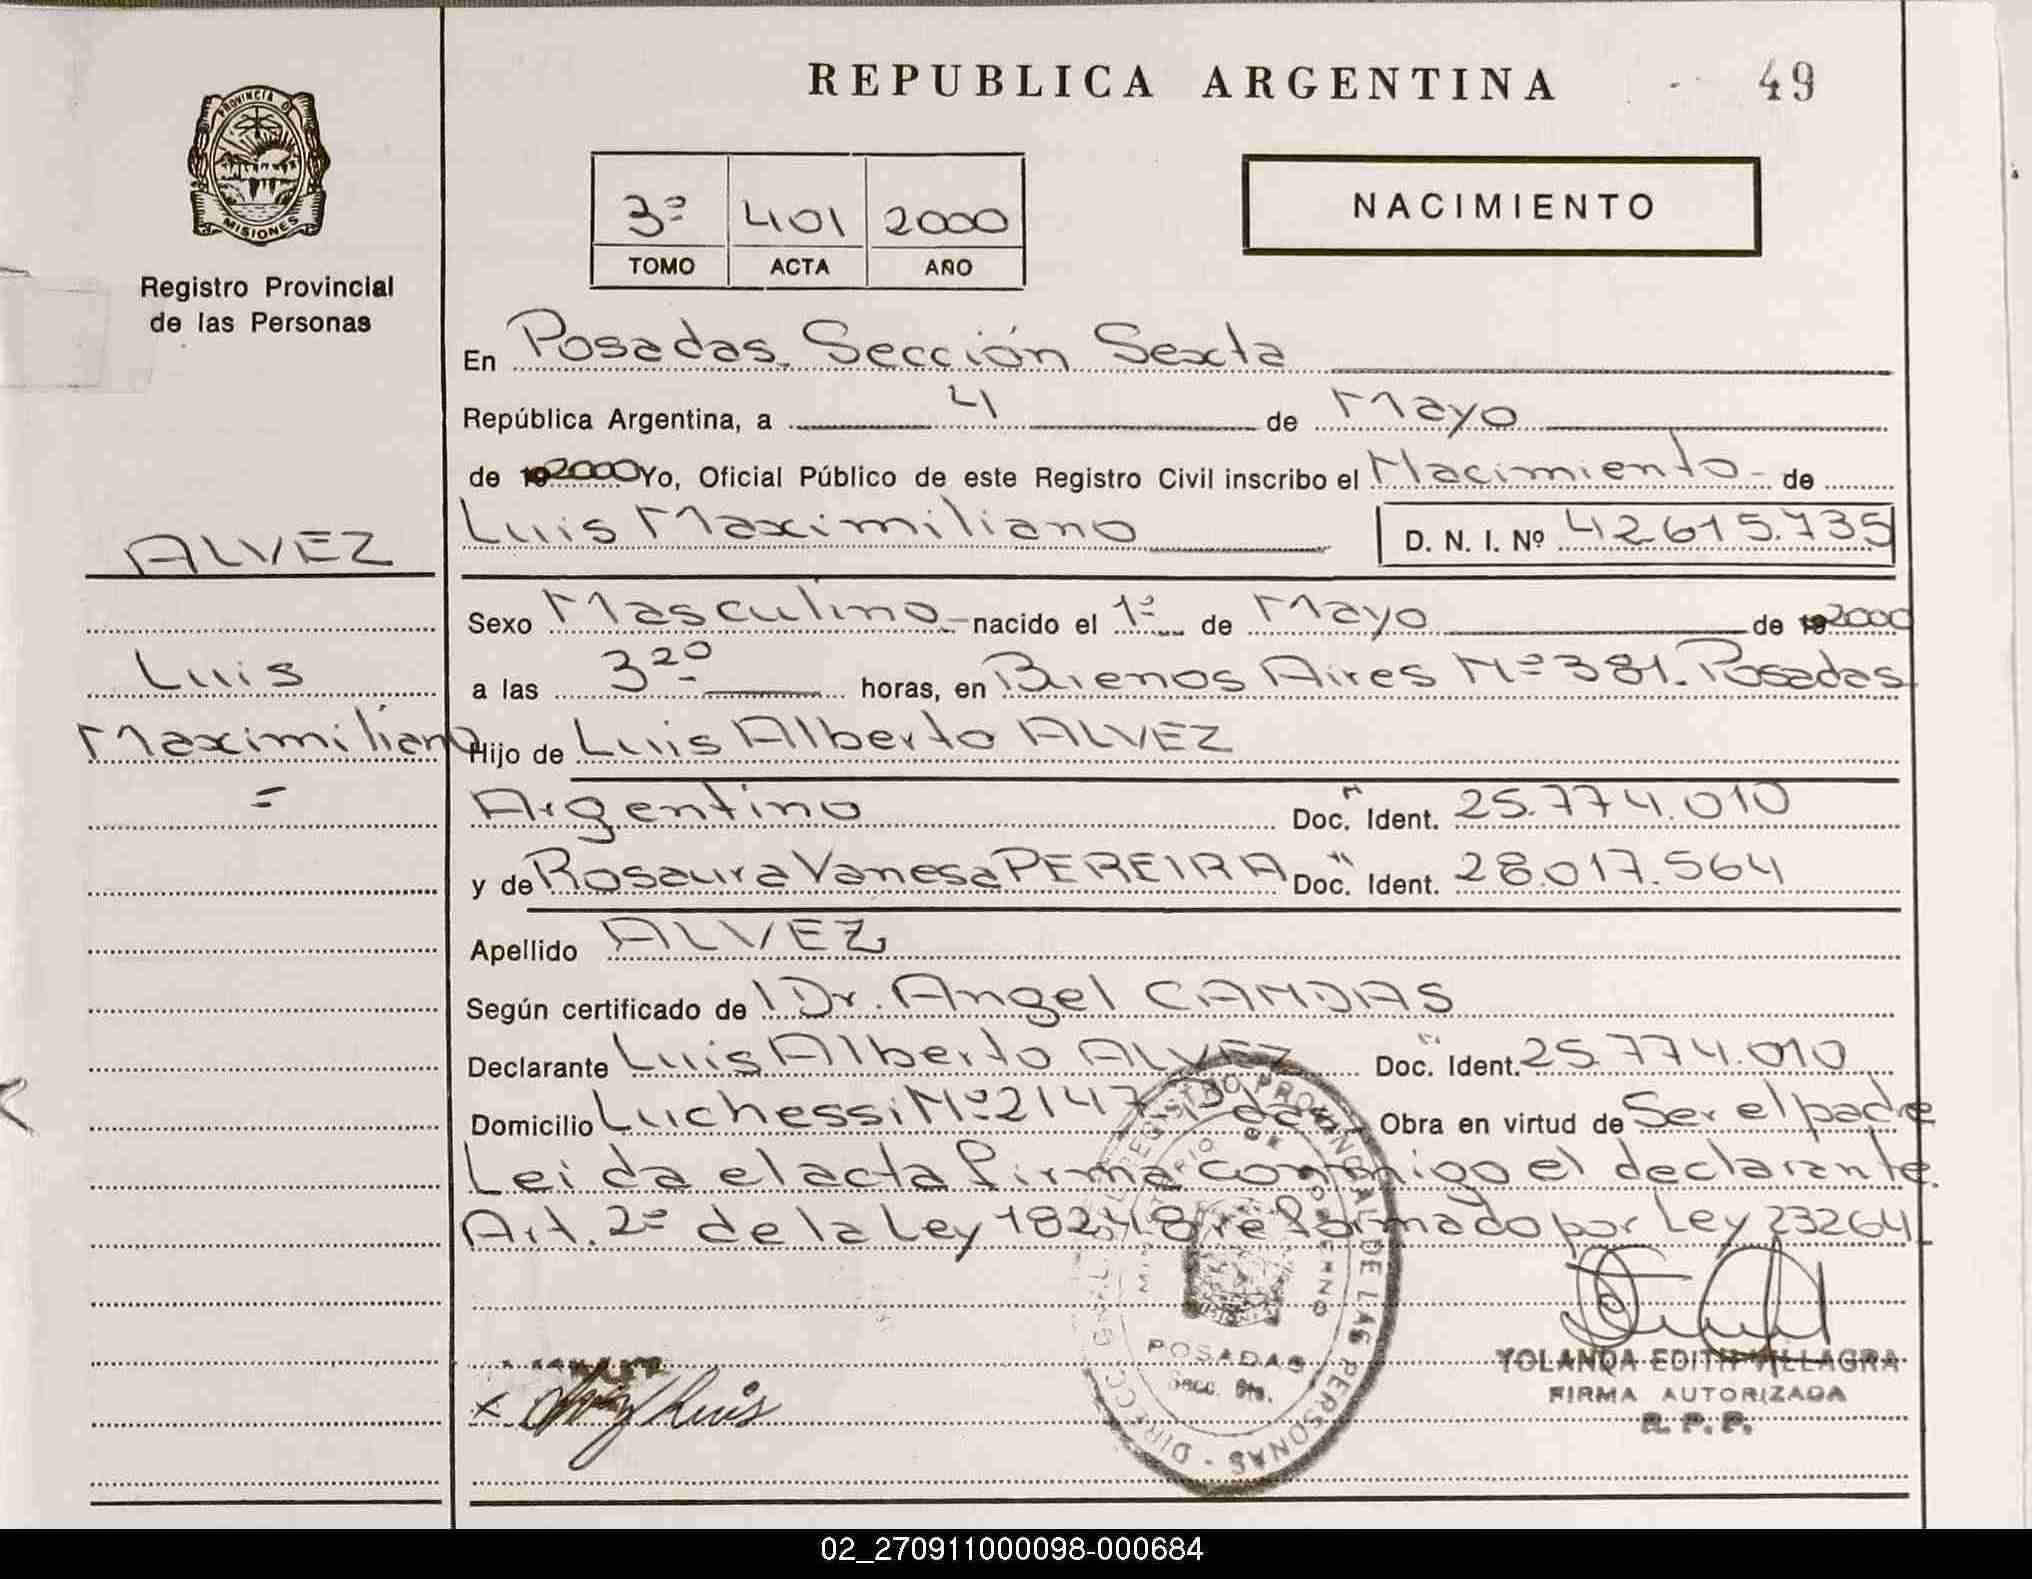 REPUBLICA ARGENTINA 49
PROVINCIA D
MISIONES
Registro Provincial
de las Personas
3º 401 2000
TOMO ACTA AÑO
NACIMIENTO
En Posadas, Sección Sexta
República Argentina, a 4 de Mayo
de 192000 Yo, Oficial Público de este Registro Civil inscribo el Nacimiento - de
Luis Maximiliano D. N. I. Nº 42.615.735
ALVEZ
Luis
Maximiliano
=
Sexo Masculino - nacido el 1º de Mayo de 192000
a las 3 20 horas, en Buenos Aires Nº 381. Posadas
Hijo de Luis Alberto ALVEZ
Argentino Doc. Ident. 25.774.010
y de Rosaura Vanesa PEREIRA Doc. Ident. 28.017.564
Apellido ALVEZ
Según certificado de Dr. Angel CANDAS
Declarante Luis Alberto ALVEZ Doc. Ident. 25.774.010
Domicilio Luchessi Nº 2147 Pdas. Obra en virtud de Ser el padre
Leida el acta firma conmigo el declarante.
Art. 2º de la Ley 18248 reformado por Ley 23264
DIRECC. GRAL. REGISTRO PROVINCIAL DE LAS PERSONAS
MINISTERIO DE GOBIERNO
POSADAS
Secc. 6ta.
x Alvez Luis
YOLANDA EDITH VILLAGRA
FIRMA AUTORIZADA
R. P. P.
02_270911000098-000684